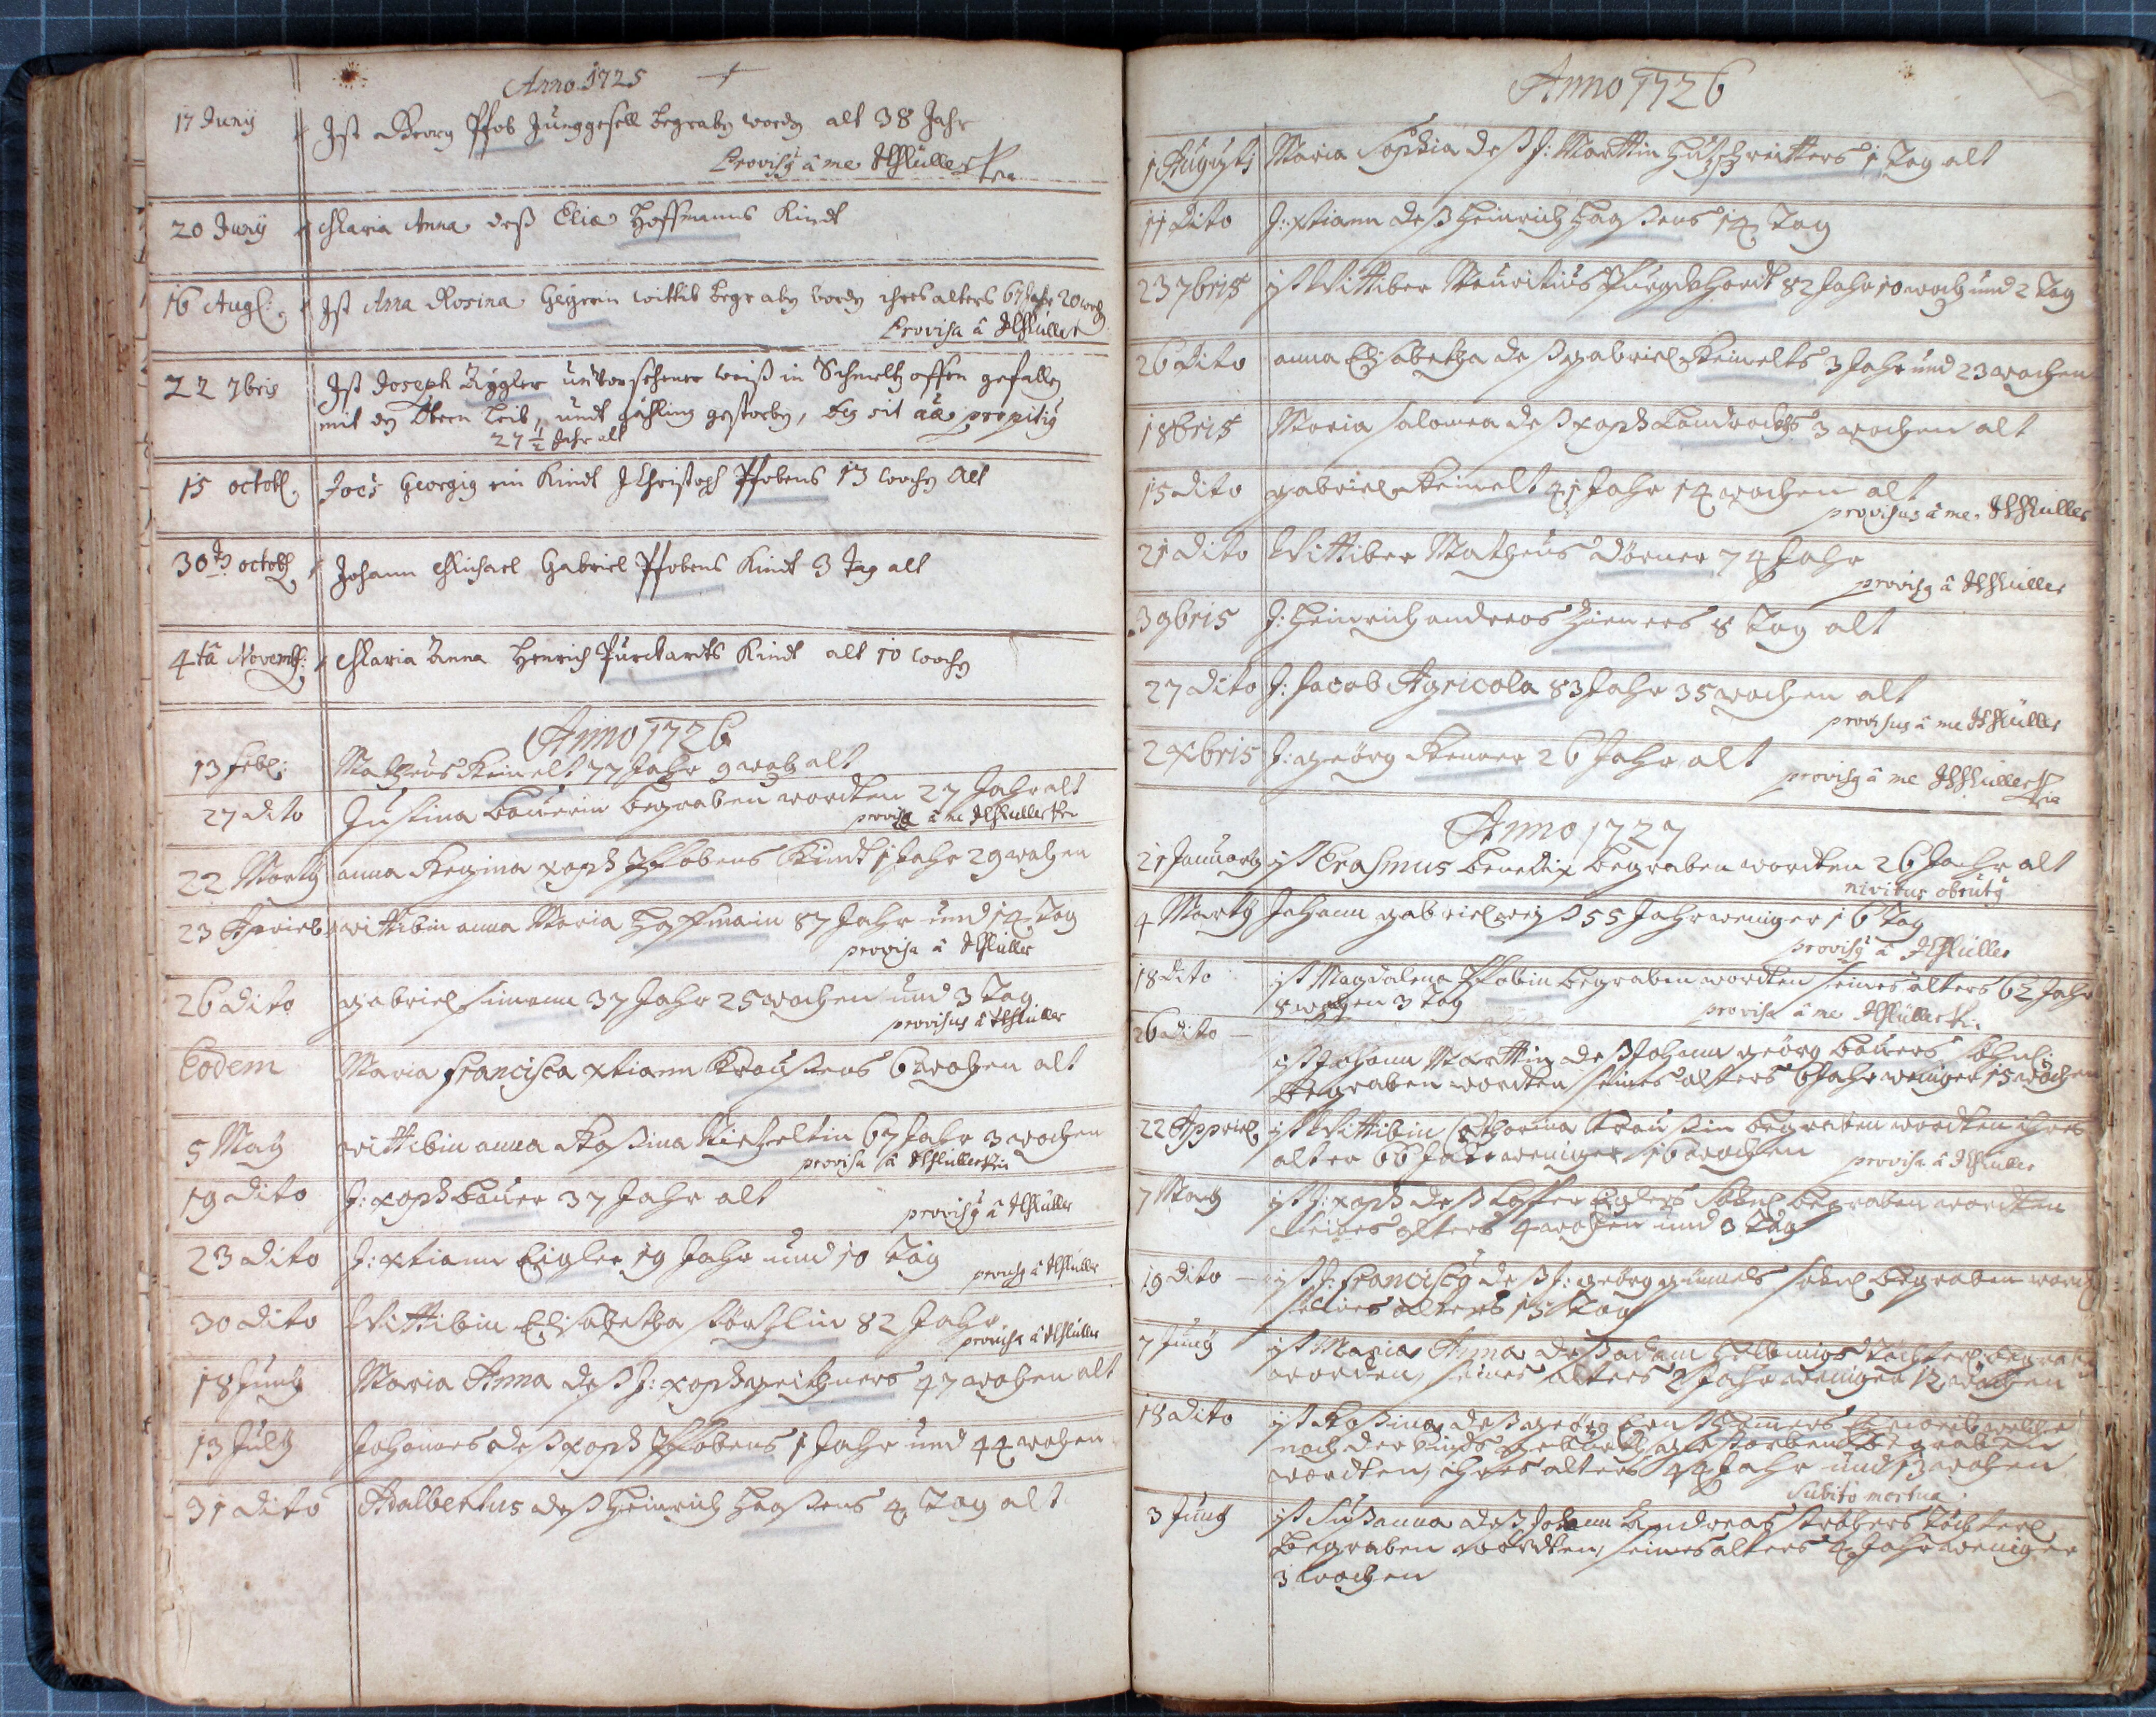 Anno 1725
17 Junÿ Ist Georg Pfob Junggesell begraben worden alt 38 Jahr
Provisus â me Müller
20 Junÿ Maria Anna deß Eliæ Hoffmanns Kindt
16 Aug: Ist Anna Rosina Geÿerin wittib begraben worden ihres alters 67 Jahr 20 woch
Provisa â Müller
22 7bris Ist Joseph Zÿgler unversehener weiß in Schmeltz offen gefallen
mit den Obern Leib, undt gähling gestorben, propitius
27 ½ Jahr alt
15 octob: Joes Georgius ein Kindt J Christoph Pfobens 13 wochen Alt
30 octob Johann Michael Gabriel Pfobens Kindt 3 Tag alt
4ta Novemb: Maria Anna Henrich Purckarts Kindt alt 10 wochen
Anno 1726
13 Feb: Matheus Keimelt 77 Jahr 9 woch alt
27 dito Justina Bauerin begraben wordten 27 Jahr alt
provisa â me Müller
22 Martÿ anna Regina xoph Pfobens Kindt 1 Jahr 29 wochen
23 Apriel wittibin anna Maria Hoffmanin 87 Jahr und 14 Tag
provisa â Müller
26 dito gabriel simann 37 Jahr 25 wochen und 3 Tag
provisus â Müller
Eodem Maria Francisca xtiann Kraußens 6 wochen alt
5 Maÿ wittibin anna Roßina 67 Jahr 3 wochen
provisa â Müller
19 dito J: xoph Bauer 37 Jahr alt
provisus â Müller
23 dito J: xtiann Zigler 19 Jahr und 10 Tag
provisus â Müller
30 dito Wittibin Elisabetha 82 Jahr
provisa â Müller
18 Junÿ Maria Anna deß J: xoph 47 wochen alt
13 Julÿ Johannes deß xoph Pfobens 1 Jahr und 44 wochen
31 dito Adalbertus deß Heinrich Haaßens 4 Tag alt
Anno 1726
1 Augustj Maria Sophia deß J: Marttin 1 Tag alt
11 dito J: xtiann deß Heinrich Haaßens 14 Tag
23 7bris ist Wittiber Mauritius 82 Jahr 10 woch und 2 Tag
26 dito anna Elisabetha deß gabriel Keimelts 3 Jahr und 23 wochen
1 8bris Maria salomea deß xoph 3 wochen alt
15 dito gabriel Keimelt 41 Jahr 14 wochen alt
provisus â me Müller
21 dito Wittiber Matheus dörner 74 Jahr
provisus â Müller
3 9bris J: Heinrich andreas 8 Tag alt
27 dito J: Jacob Agricola 83 Jahr 35 wochen alt
provisus â me Müller
2 xbris J: georg 26 Jahr alt
provisus â me Müller
Anno 1727
21 Januarÿ ist Erasmus Benedix begraben wordten 26 Jahr alt
nivibus obrutus
4 Martÿ Johann gabriel 55 Jahr weniger 16 Tag
provisus â Müller
18 dito ist Magdalena Pfobin begraben wordten seines alters 62 Jahr
8 wochen 3 Tag
provisa â me Müller
26 dito ist Johann Marttin deß Johann georg Bauers söhnl:
begraben wordten seines alters 6 Jahr weniger 15 wochen
22 Appriel ist Wittibin Catharina Kraußin begraben wordten ihres
alter 66 Jahr weniger 16 wochen
provisa â Müller
7 Maÿ ist J: xoph deß Zieglers söhnl begraben wordten
seines alters 4 wochen und 3 Tag
19 dito ist J: Franciscus deß J: georg söhnl begraben word
seines alters 15 Tag
7 Junÿ ist Maria Anna deß adam Töchterl begraben
worden, seines alters 2 Jahr weniger 12 wochen
18 dito ist Roßina deß georg
nach der Kindts geburth gestorben begraben
wordten, ihres alters 44 Jahr und 13 wochen
Subitò mortua
3 Junÿ ist Sußanna deß Johann Andreas Töchterl
begraben wordten, seines alters 4 Jahr weniger
3 wochen